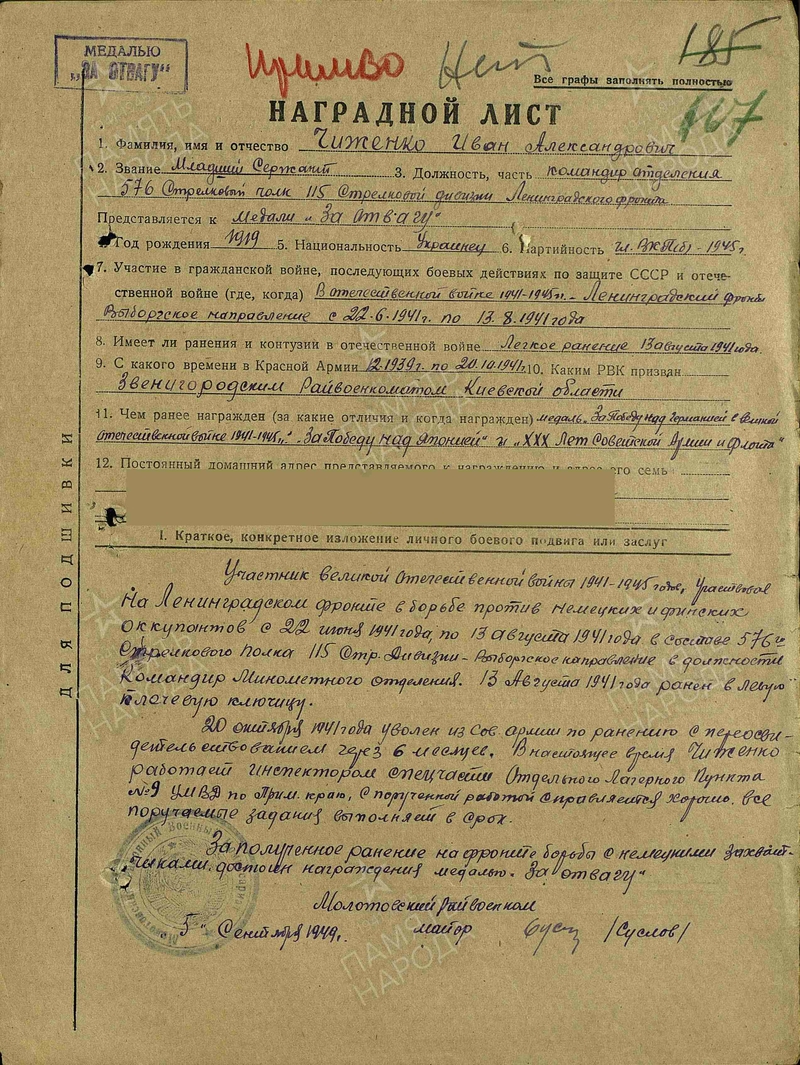 МЕДАЛЬЮ
„ЗА ОТВАГУ“
185
Все графы заполнять полностью
167
НАГРАДНОЙ ЛИСТ
1. Фамилия, имя и отчество Чиженко Иван Александрович
2. Звание Младший Сержант 3. Должность, часть командир отделения
576 Стрелковый полк 115 Стрелковой дивизии Ленинградского фронта
Представляется к Медали „За Отвагу“
Год рождения 1919 5. Национальность Украинец 6. Партийность чл. ВКП(б) - 1945г
7. Участие в гражданской войне, последующих боевых действиях по защите СССР и отече-
ственной войне (где, когда) В отечественной войне 1941-1945гг. - Ленинградский фронт
Выборгское направление с 22.6.1941г. по 13.8.1941года
8. Имеет ли ранения и контузии в отечественной войне Легкое ранение 13 августа 1941 года.
9. С какого времени в Красной Армии 12.1939г. по 20.10.1941г. 10. Каким РВК призван
Звенигородским Райвоенкоматом Киевской области
11. Чем ранее награжден (за какие отличия и когда награжден) медаль „За Победу над Германией в Великой
Отечественной войне 1941-1945гг.“ „За Победу над Японией“ и „XXX Лет Советской Армии и Флота“
12. Постоянный домашний адрес представляемого к награждению и адрес его семь
I. Краткое, конкретное изложение личного боевого подвига или заслуг
Участник Великой Отечественной войны 1941-1945 годы, Участвовал
На Ленинградском фронте в борьбе против немецких и финских
оккупонтов с 22 июня 1941 года, по 13 августа 1941 года в составе 576го
Стрелкового Полка 115 Стр. Дивизии - Выборгское направление в должности
Командир Минометного отделения. 13 Августа 1941 года ранен в левую
плечевую ключицу.
20 октября 1941 года уволен из Сов. Армии по ранению с переосви-
детельствованием через 6 месяцев. В настоящее время Чиженко
работает инспектором спецчасти Отдельного Лагерного Пункта
№9 УМВД по Прим. краю, с порученной работой справляется хорошо. все
поручаемые задания выполняет в срок.
За полученное ранение на фронте борьбы с немецкими захват-
чиками, достоин награждения медалью „За отвагу“
Молотовский райвоенком
„5“ Сентября 1949г. майор /Суслов/
ДЛЯ ПОДШИВКИ
ПАМЯТЬ НАРОДА